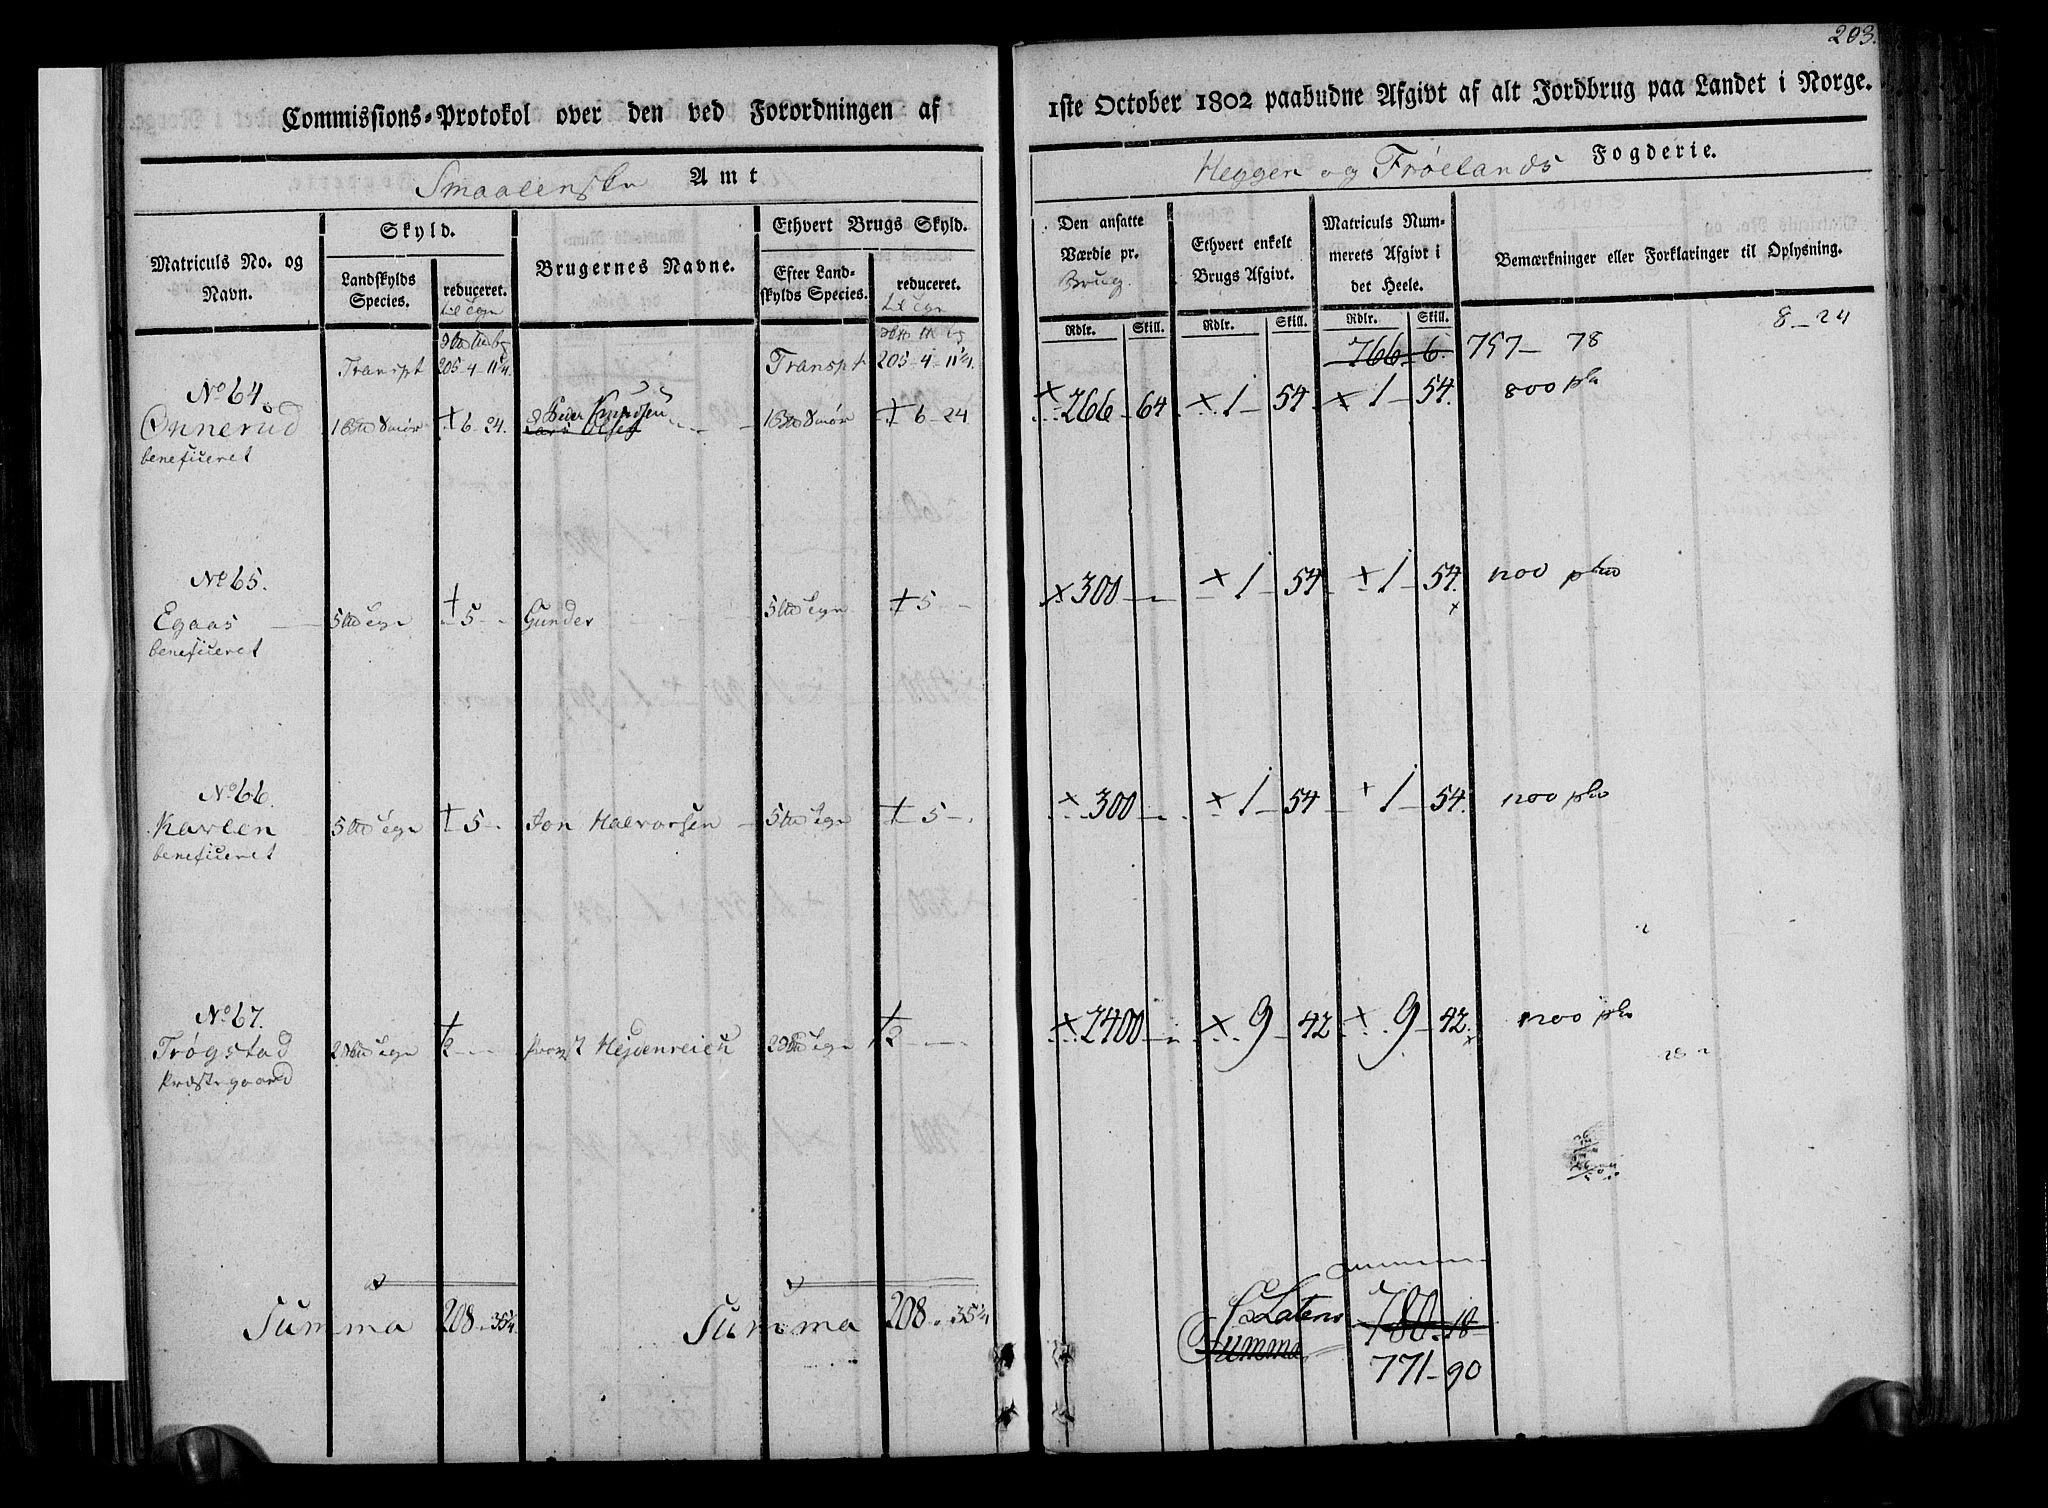 203.
Commissions-Protokol over den ved Forordningen af 1ste October 1802 paabudne Afgivt af alt Jordbrug paa Landet i Norge.
Smaalenske Amt
Heggen og Frøelands Fogderie.
Matriculs No. og Navn.
Skyld.
Landskylds Species.
reduceret.
Brugernes Navne.
Ethvert Brugs Skyld.
Efter Landskylds Species.
reduceret.
Den ansatte Værdie pr. Brug.
Ethvert enkelt Brugs Afgivt.
Matriculs Nummerets Afgivt i det Heele.
Bemærkninger eller Forklaringer til Oplysning.
Rdlr. Skill. Rdlr. Skill. Rdlr. Skill.
Transpt 205-4-11¼. Transpt 205-4-11¼. 766-6. 757-78 8-24
No 64.
Onnerud + 6-24. Peder Knudsen + 6-24 × 266-64 × 1-54 × 1-54. 800
beneficeret
No 65.
Egaas + 5 Gunder + 5 × 300 × 1-54 × 1-54. 1200
beneficeret
No 66.
Karlen + 5 Jon Halvorsen + 5 × 300 × 1-54 + 1-54. 1200
beneficeret
No 67.
Trøgstad Provst Hejdenreich × 2400 × 9-42 × 9-42. 1200
Præstegaard
Summa 208 - 35¼ Summa 208 - 35¼ Latens 780-18
Summa
771-90